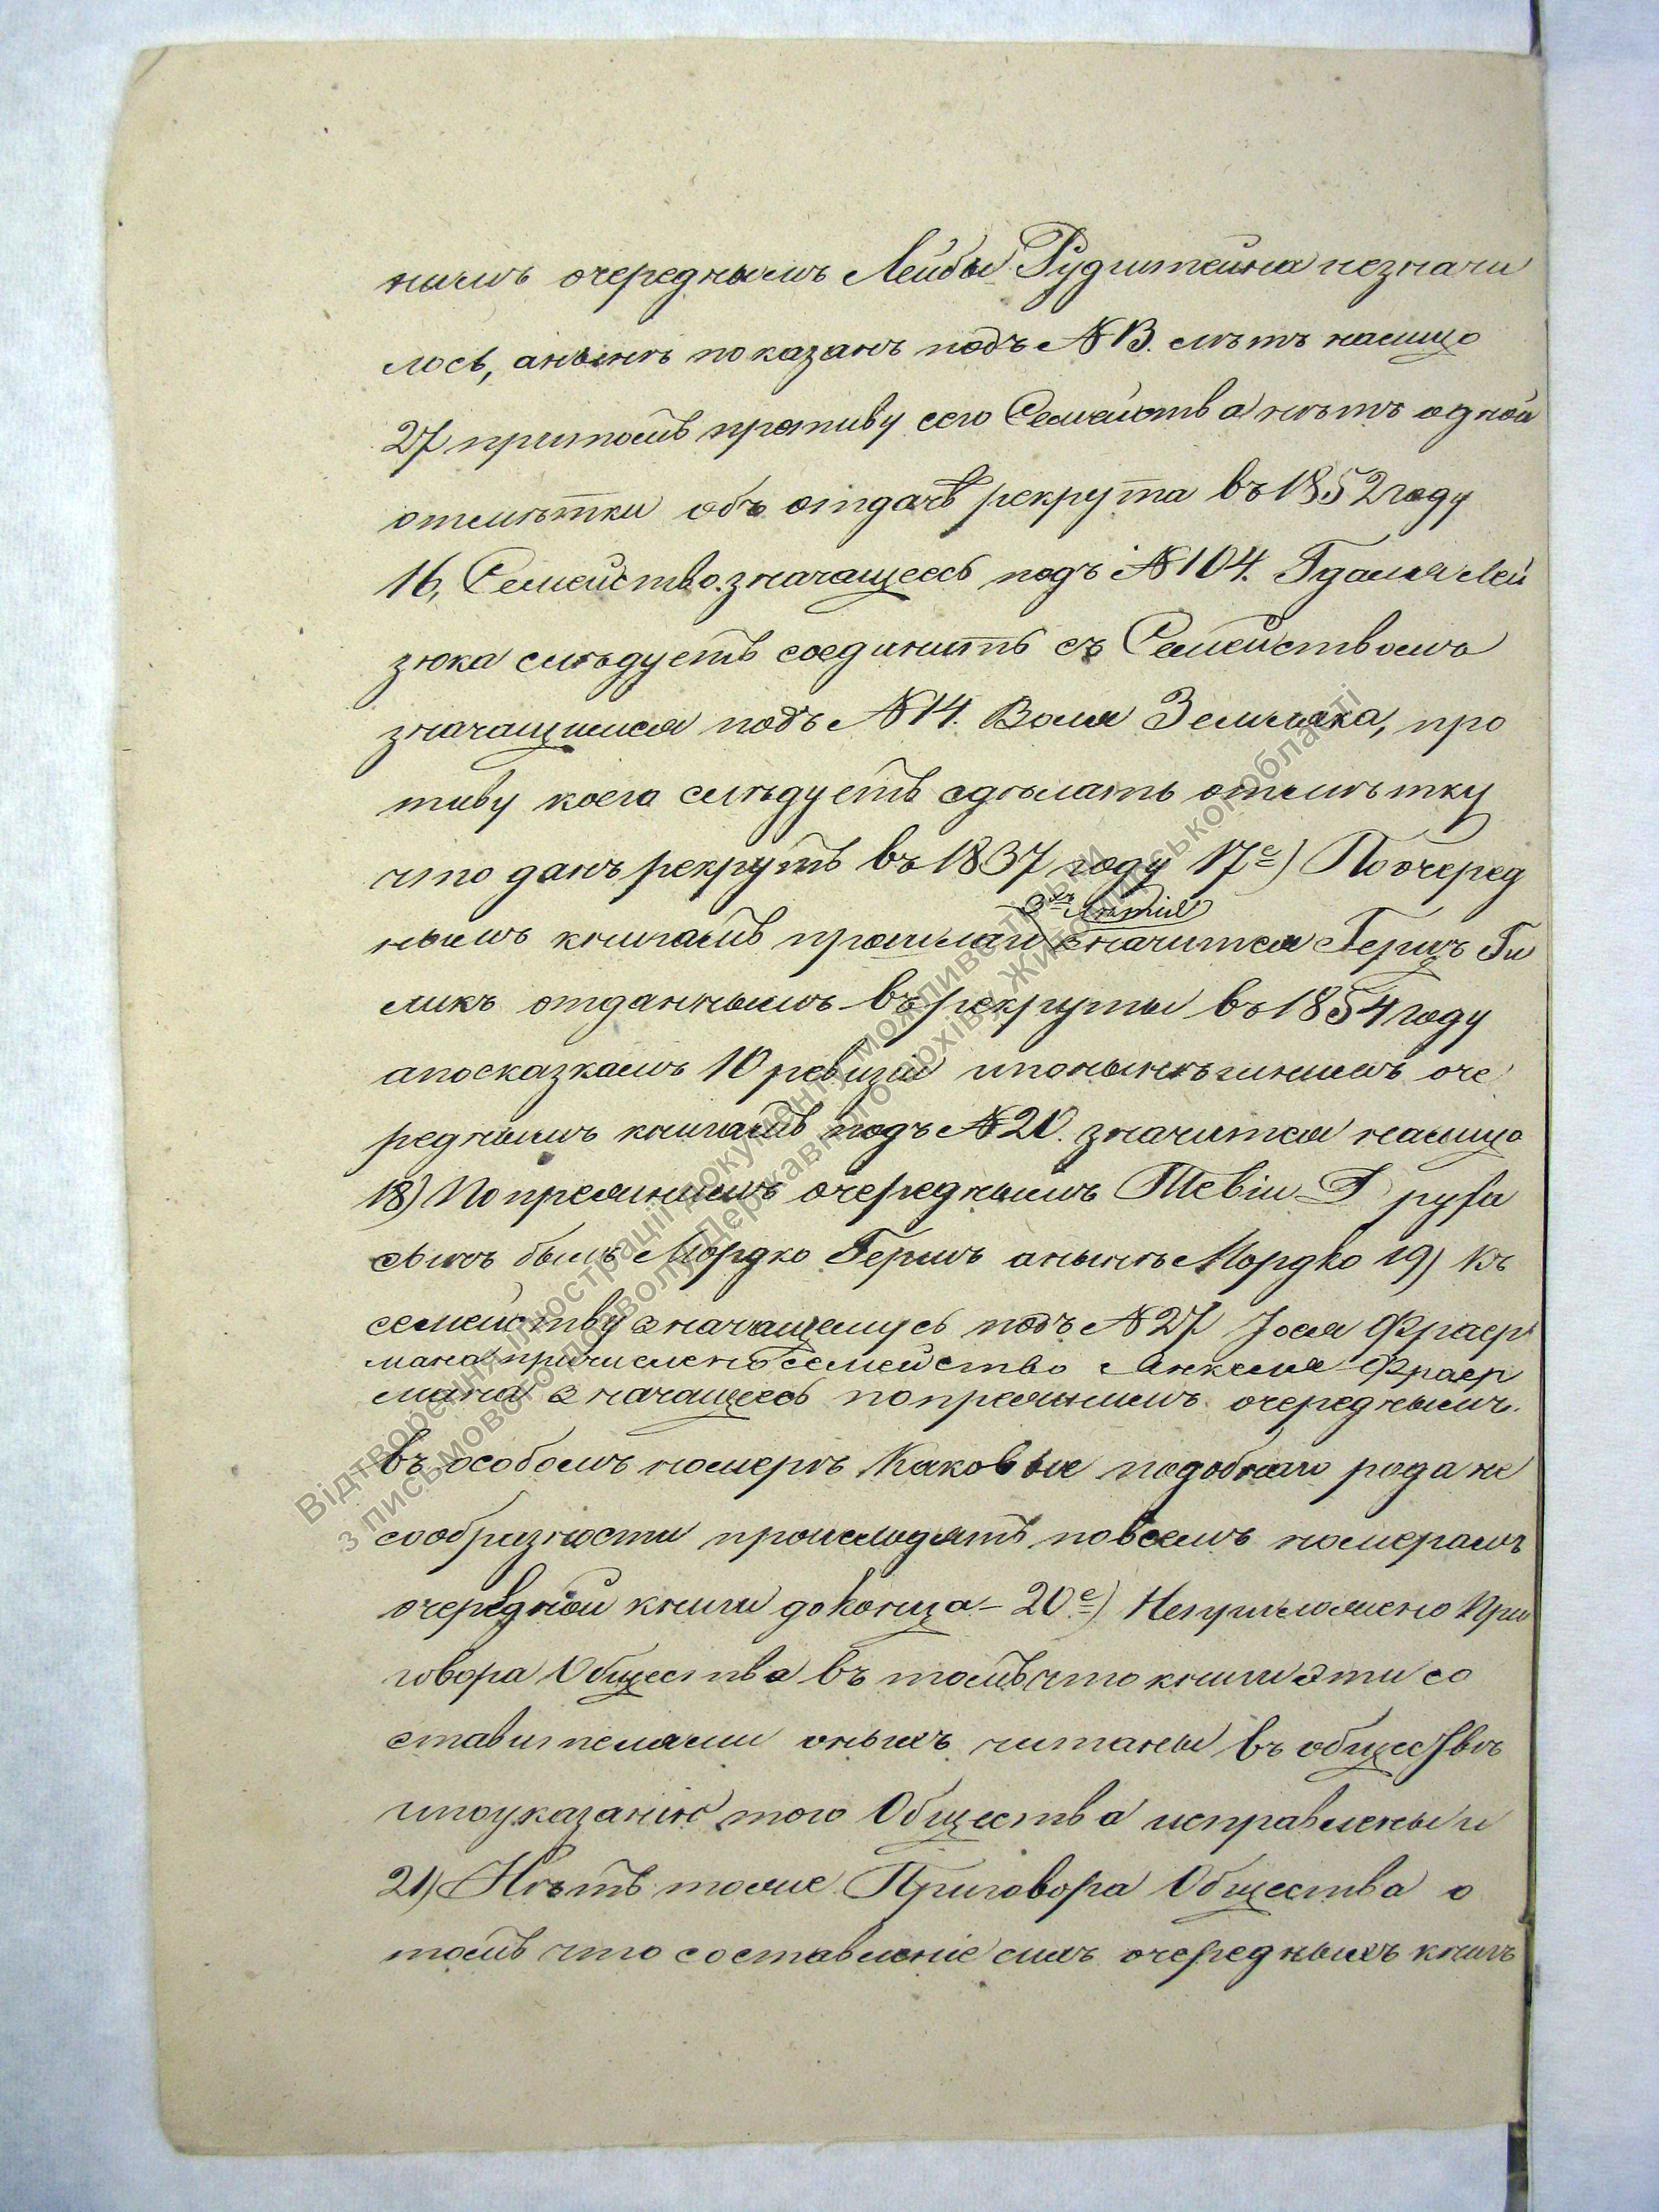 нимъ очереднымъ Лейбы Рудштейна незначи
лось, анынѣ показанъ подъ №13. лѣтъ налицо
27 притомъ противу сего Семейства нѣтъ одной
отмѣтки объ отдачѣ рекрута въ 1852 году
16, Семейство значащееся подъ №104. Гдаля Лей
зюка слѣдуетъ соединить съ Семействомъ
значащимся подъ №14. Воля Земляка, про
тиву коего слѣдуетъ сдѣлать отмѣтку
что данъ рекрутъ въ 1837 году 17е) По очеред
нымъ книгамъ прошлаго 3хъ лѣтія значится Гершъ Ги
ликъ отданнымъ въ рекруты въ 1854 году
апосказкамъ 10 ревизіи ипонынѣшнимъ оче
реднымъ книгамъ подъ №20. значится налицо
18) По прежнимъ очереднымъ Тевіи Друфа
сынъ былъ Мордко Гершъ анынѣ Мордко 19) Къ
семейству значащемусь подъ №27 Іося Фраер
мана причислено семейство Янкеля Фраер
мана значащееся попрежнимъ очереднымъ
въ особомъ номерѣ Каковыя подобнаго рода не
сообразности происходятъ повсемъ номерамъ
очередной книги доконца – 20е) Неприложено При
говора Общества въ томъ что книги эти со
ставителями оныхъ читаны въ обществѣ
ипоуказанію того Общества исправлены и
21) Нѣтъ тоже Приговора Общества о
томъ что составленіе сихъ очередныхъ книгъ
Відтворення ілюстрації документу можливе тільки
з письмового дозволу Державного архіву Житомирської області